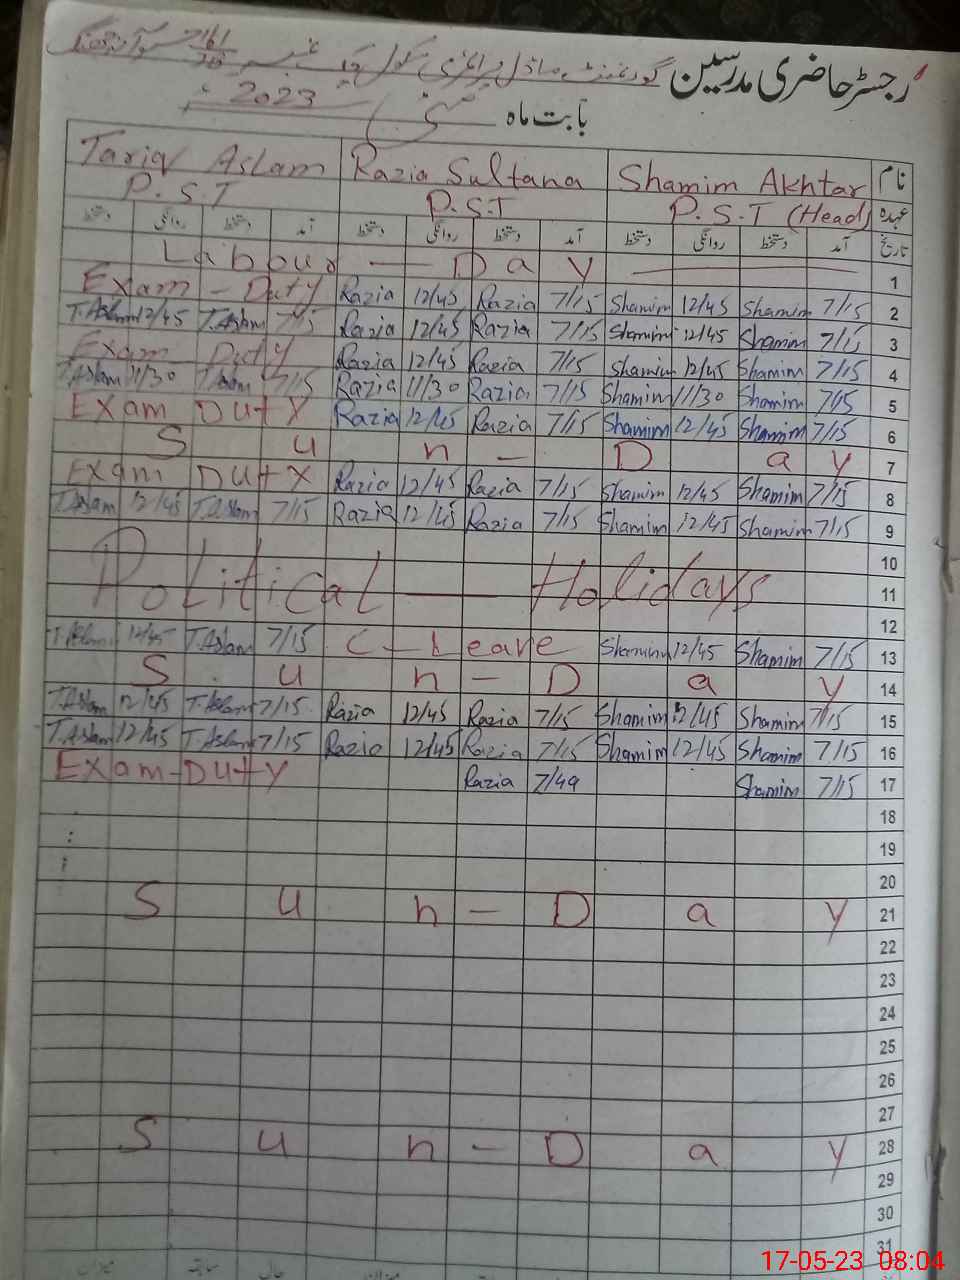 رجسٹر حاضری مدرسین گورنمنٹ ماڈل پرائمری سکول چک نمبر 161
بابت ماہ مئی 2023
نام Shamim Akhtar Razia Sultana Tariq Aslam
عہدہ P.S.T (Head) P.S.T P.S.T
تاریخ آمد دستخط روانگی دستخط آمد دستخط روانگی دستخط آمد دستخط روانگی دستخط
Labour — Day 1
Exam - Duty Razia 12/45 Razia 7/15 Shamim 12/45 Shamim 7/15 2
T.Aslam 12/45 T.Aslam 7/15 Razia 12/45 Razia 7/15 Shamim 12/45 Shamim 7/15 3
Exam Duty Razia 12/45 Razia 7/15 Shamim 12/45 Shamim 7/15 4
T.Aslam 11/30 T.Aslam 7/15 Razia 11/30 Razia 7/15 Shamim 11/30 Shamim 7/15 5
Exam Duty Razia 12/45 Razia 7/15 Shamim 12/45 Shamim 7/15 6
S u n - D a y 7
Exam Duty Razia 12/45 Razia 7/15 Shamim 12/45 Shamim 7/15 8
T.Aslam 12/45 T.Aslam 7/15 Razia 12/45 Razia 7/15 Shamim 12/45 Shamim 7/15 9
10
Political — Holidays 11
12
T.Aslam 12/45 T.Aslam 7/15 C - Leave Shamim 12/45 Shamim 7/15 13
S u n - D a y 14
T.Aslam 12/45 T.Aslam 7/15 Razia 12/45 Razia 7/15 Shamim 12/45 Shamim 7/15 15
T.Aslam 12/45 T.Aslam 7/15 Razia 12/45 Razia 7/15 Shamim 12/45 Shamim 7/15 16
Exam - Duty Razia 7/49 Shamim 7/15 17
18
19
20
S u n - D a y 21
22
23
24
25
26
27
S u n - D a y 28
29
30
31
17-05-23 08:04